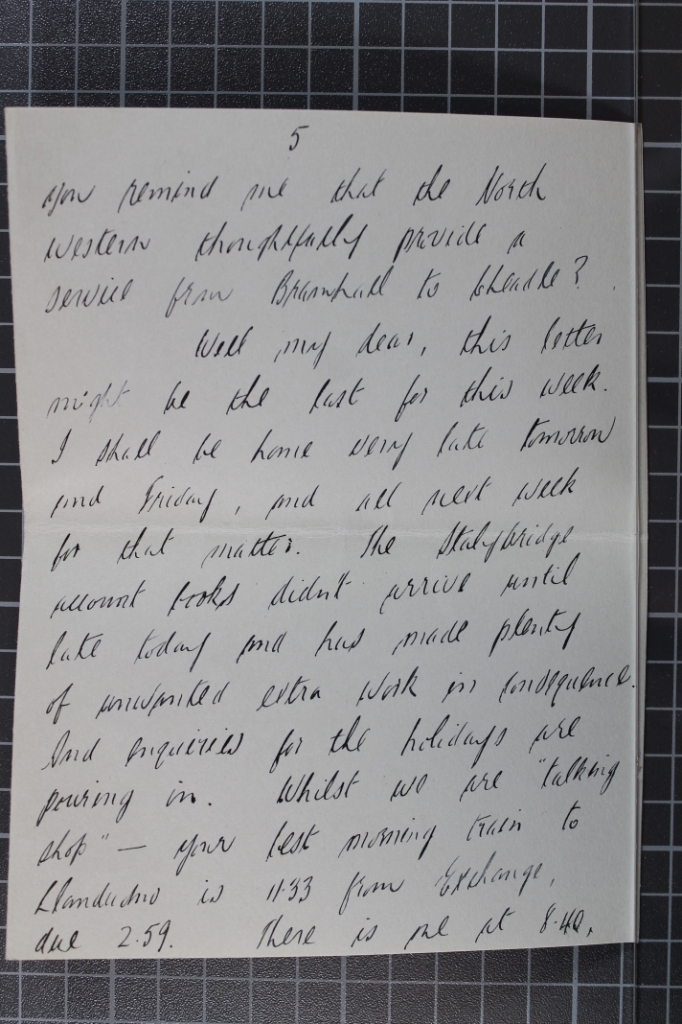 5
you remind me that the North
Western thoughtfully provide a
service from Bramhall to Cheadle?
Well my dear, this letter
might be the last for this week.
I shall be home very late tomorrow
and Friday, and all next week
for that matter. The Stalybridge
account books didn't arrive until
late today and has made plenty
of unwanted extra work in consequence.
And enquiries for the holidays are
pouring in. Whilst we are "talking
shop" — your best morning train to
Llandudno is 11.33 from Exchange,
due 2.59. There is one at 8.40,